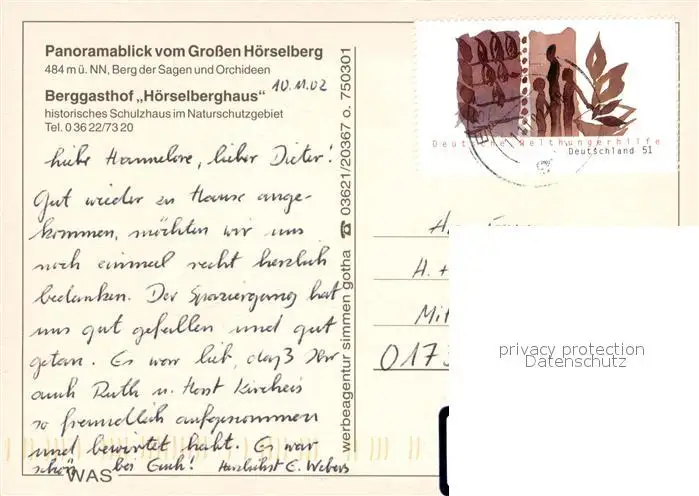 Panoramablick vom Großen Hörselberg
484 m ü. NN, Berg der Sagen und Orchideen
10.11.02
Berggasthof „Hörselberghaus“
historisches Schulzhaus im Naturschutzgebiet
Tel. 0 36 22/73 20
Liebe Hannelore, lieber Dieter!
Gut wieder zu Hause ange-
kommen, möchten wir uns
noch einmal recht herzlich
bedanken. Der Spaziergang hat
uns gut gefallen und gut
getan. Es war lieb, daß Ihr
auch Ruth u. Horst Kircheis
so freundlich aufgenommen
und bewirtet habt. Es war
schön bei Euch! Herzlichst E. Webers
WAS
werbeagentur simmen gotha ☎ 03621/20367 o. 750301
Deutsche Welthungerhilfe
Deutschland 51
H. +
Mit
0173
privacy protection
Datenschutz